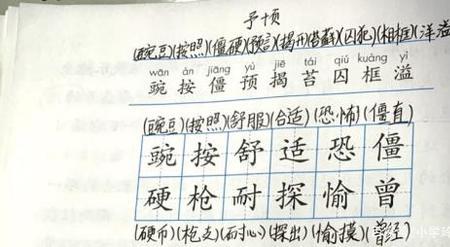 予页
(豌豆)(按照)(僵硬)(预言)(揭开)(苔藓)(囚犯)(相框)(洋溢
wān àn jiāng yù jiē tái qiú kuàng yì
豌 按 僵 预 揭 苔 囚 框 溢
(豌豆)(按照)(舒服)(合适)(恐怖)(僵直)
豌 按 舒 适 恐 僵
硬 枪 耐 探 愉 曾
(硬币)(枪支)(耐心)(探出)(愉)(曾经)
小学